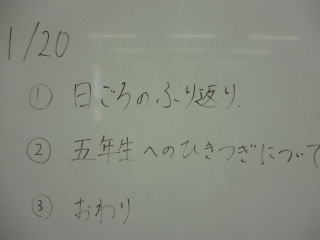 1/20
① 日ごろのふり返り.
② 五年生へのひきつぎについて
③ おわり.